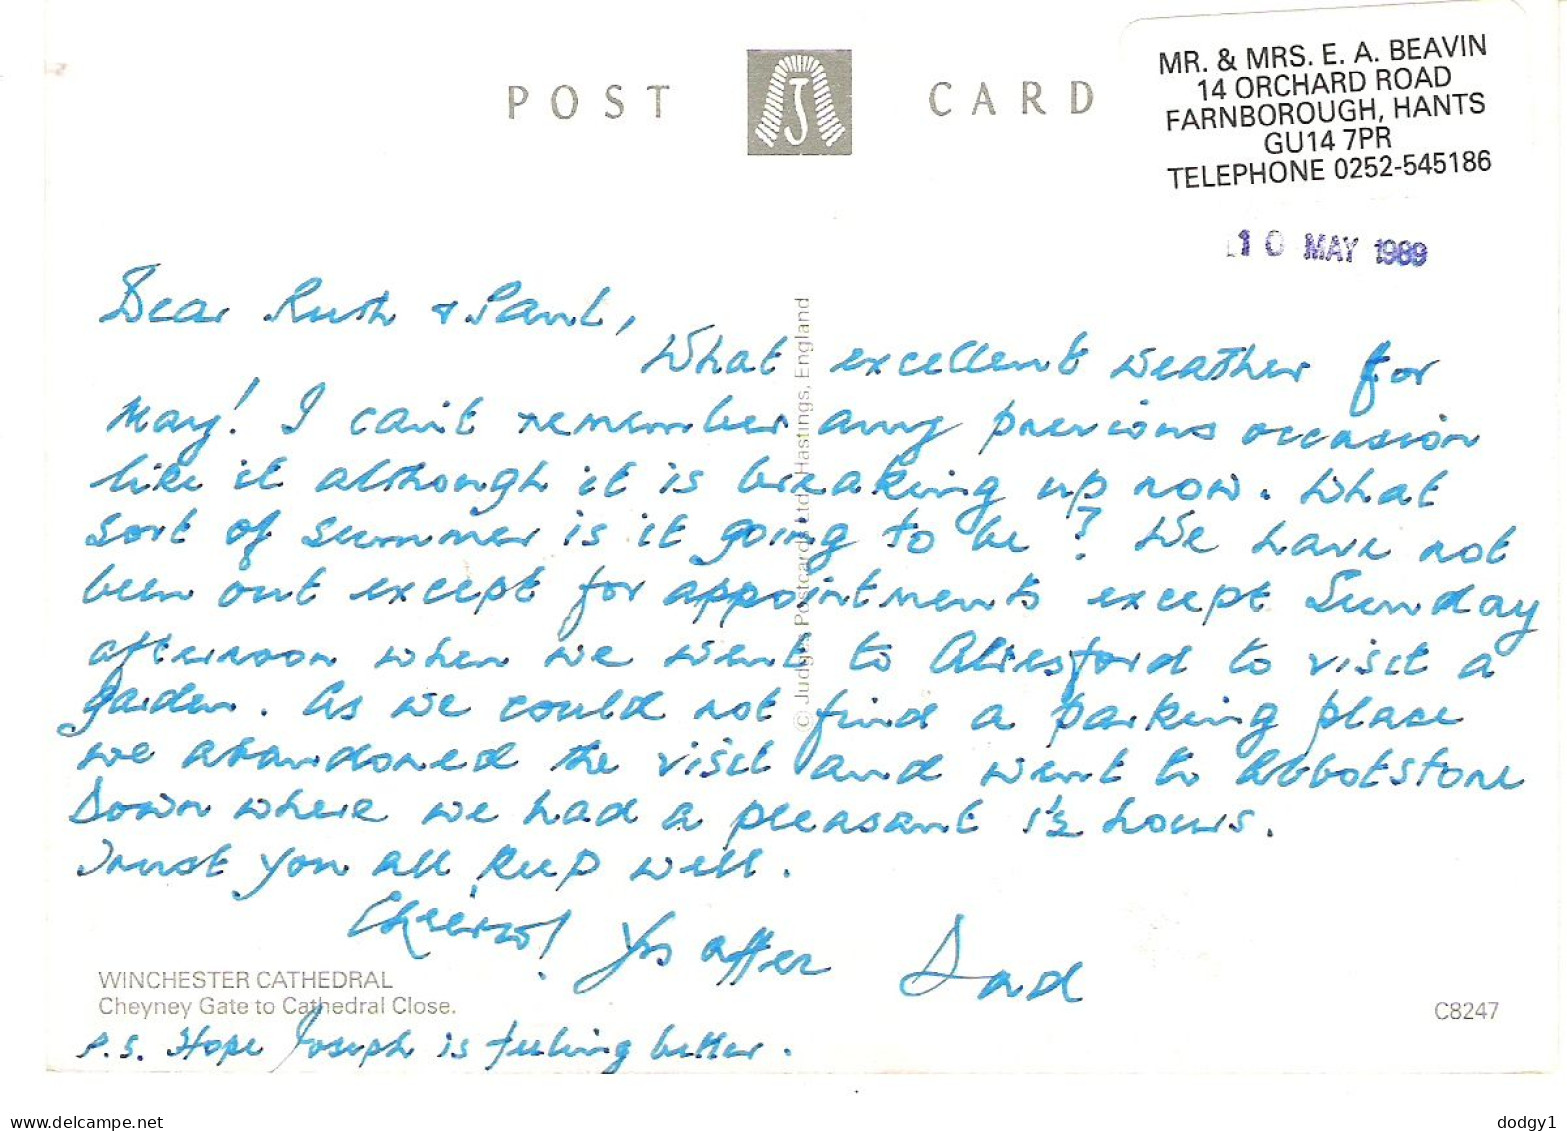 POST CARD
J
MR. & MRS. E. A. BEAVIN
14 ORCHARD ROAD
FARNBOROUGH, HANTS
GU14 7PR
TELEPHONE 0252-545186
10 MAY 1989
Dear Ruth & Paul,
What excellent weather for
May! I can't remember any previous occasion
like it although it is breaking up now. What
sort of summer is it going to be? We have not
been out except for appointments except Sunday
afternoon when we went to Alresford to visit a
garden. As we could not find a parking place
we abandoned the visit and went to Abbotstone
Down where we had a pleasant 1½ hours.
Trust you all keep well.
Cheerio! Yrs affec Dad
© Judges Postcards Ltd, Hastings, England
WINCHESTER CATHEDRAL
Cheyney Gate to Cathedral Close.
C8247
P.S. Hope Joseph is feeling better.
www.delcampe.net
dodgy1